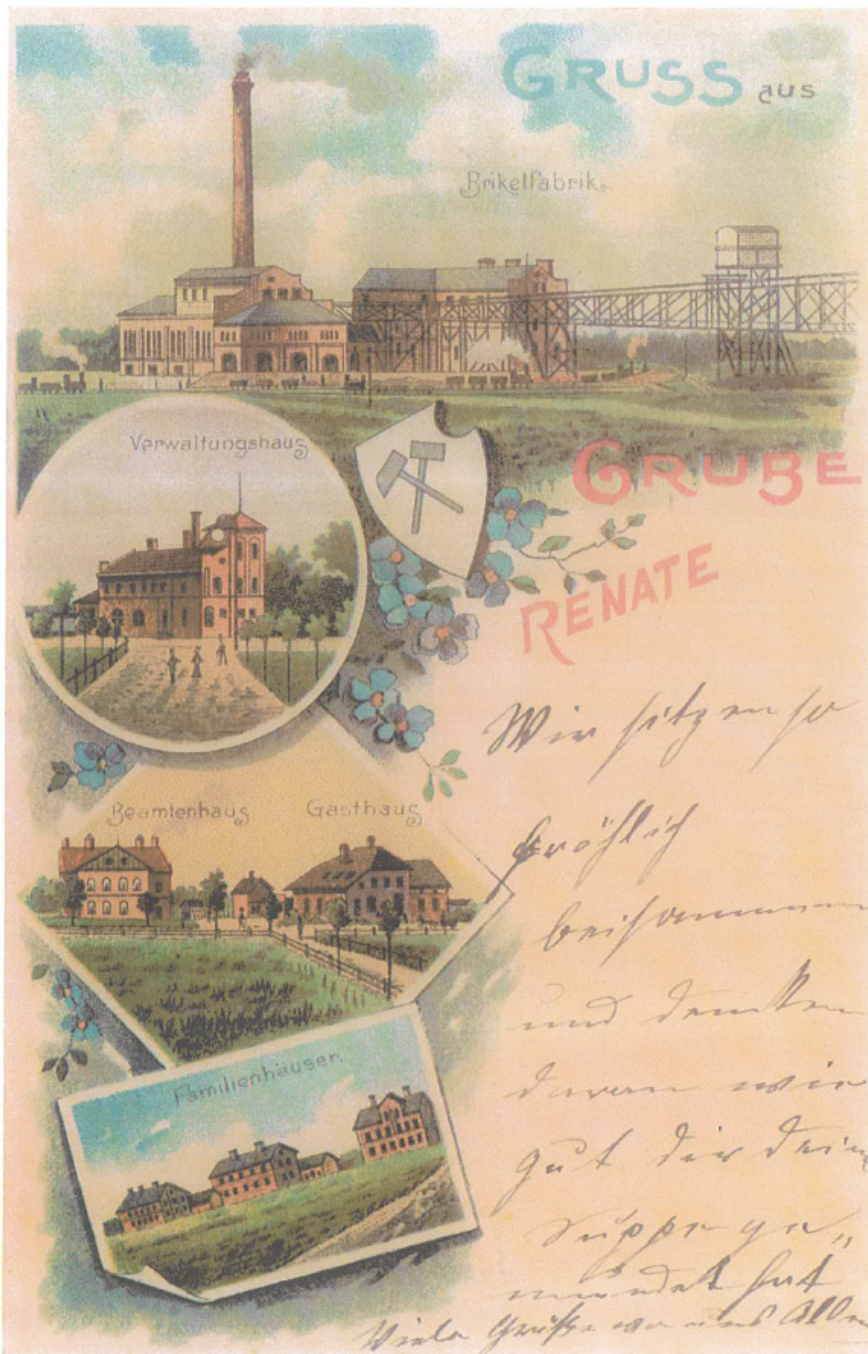 GRUSS aus
Briketfabrik.
Verwaltungshaus
GRUBE
RENATE
Beamtenhaus Gasthaus
Familienhäuser.
Wir sitzen so
fröhlich
beisammen
und denken
daran wie
gut dir deine
Suppe ge„
mundet hat
Viele Grüße von uns Allen